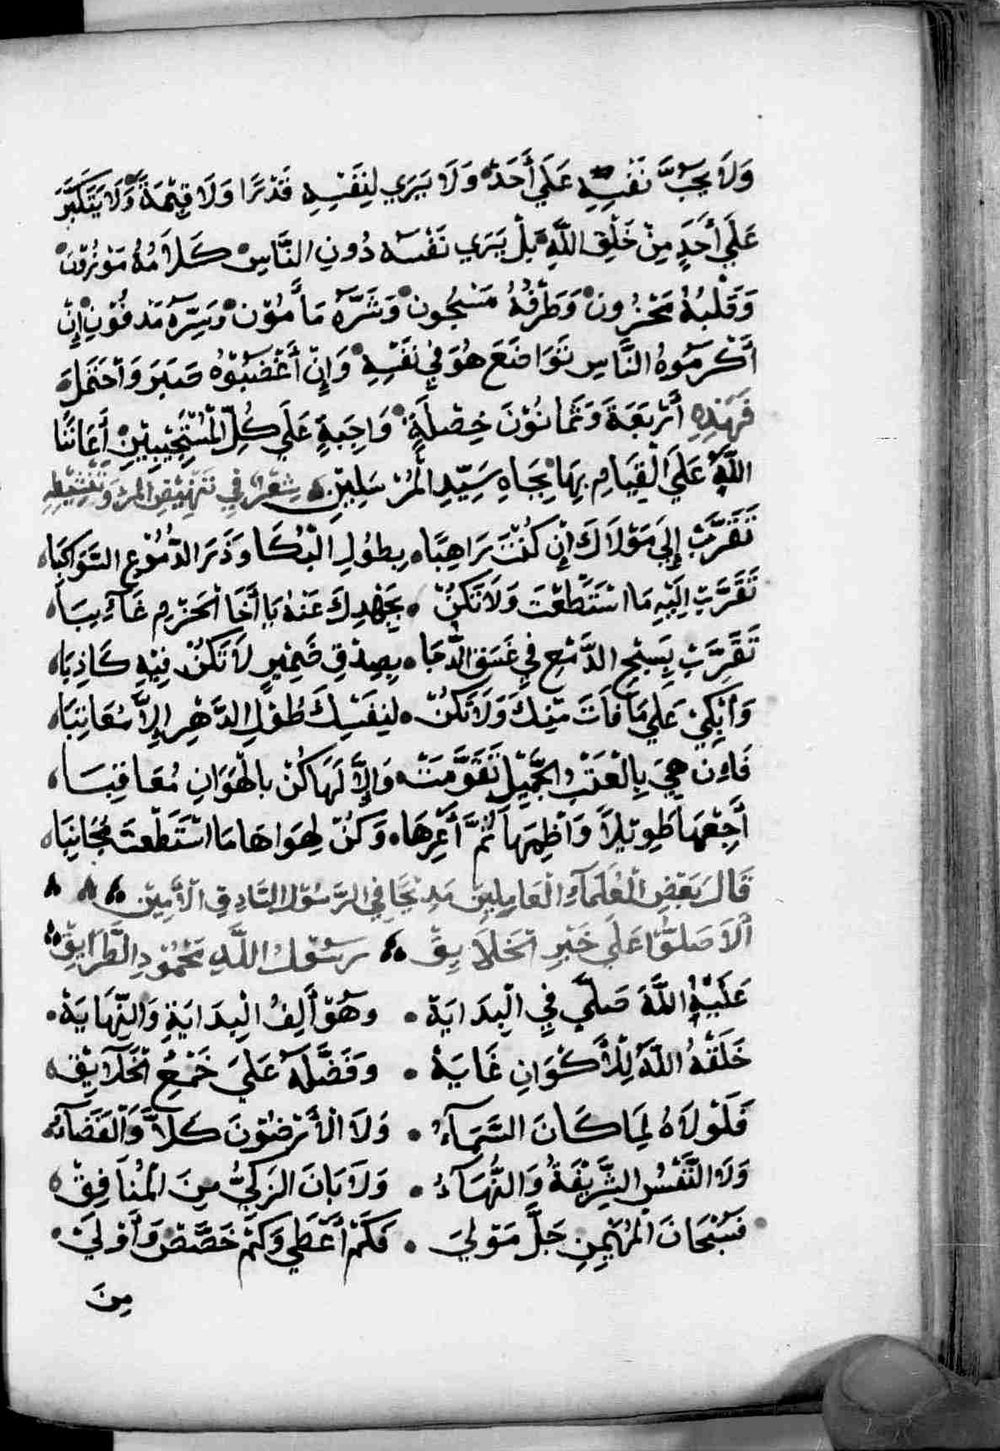 وَلَا يُحِبَّ نَفْسِهِ عَلَي أَحَدْ وَلَا يَرَي لِنَفْسِهِ قَدْرًا وَلَا قِيْمَةً وَلَا يَتَكَبَّرَ
عَلَي أَحَدٍ مِنْ خَلْقِ اللَّهِ بَلْ يَرَي نَفْسَهُ دُونِ النَّاسِ كَلَامُهُ مَوْزُوْنْ
وَقَلْبُهُ مَحْزُونْ وَطَرْفُهُ مَسْجُونْ وَشَرَّهُ مَأْمُوْن وَسِرِّهُ مَدْفُوْن إِنْ
أَكْرَمَوهُ النَّاسِ تَوَاضَعَ هُوَ فِي نَفْسِهِ وَإِنْ أَغْضَبُوْهُ صَبَرَ وَأَحْتَمَلَ
فَهَذِهِ أَرْبَعَةَ وَثَمَانُوْنَ خِصْلَةً وَاجِبَةٍ عَلَي كُلِّ الْمُسْتَجِيْبِيْنِ أَعَانَنَا
اللَّهُ عَلَي الْقِيَامِ بِهَا بِجَاهِ سَيِّدِ الْمُرْسَلِيْنِ شِعْرٌ فِي تَنْهِيْضِ الْمَرْءِ وَتَنْشِيْطِهِ
تَقَرَّبْ إِلَي مَوْلَاكَ إِنْ كُنْتَ رَاهِبًا بِطُولِ الْبُكَا وَذَرَ الدُّمُوْعِ السَّوَاكِبَا
تَقَرَّبْ اِلَيْهِ مَا اسْتَطَعْتَ وَلَا تَكُنْ بِجَهْدِكَ عَنْهُ يَا أَخَا الْحَزْمِ غَآئِبَا
تَقَرَّبْ بِسَفْحِ الدَّمْعِ فِي غَسَقِ الدُّجَا بِصِدْقِ ضَمِيْرٍ لَا تَكُنْ فِيْهِ كَاذِبَا
وَابْكِيْ عَلَي مَا فَاتَ مِنْكَ وَلَا تَكُنْ لِنَفْسِكَ طُوْلِ الدَّهْرِ إِلَّا مُعَاتِبَا
فَاِنْ هِيَ بِالْعَتْبِ الْجَمِيْلِ تَقَوَّمَتْ وَإِلَّا لَهَا كُنْ بِالْهَوَانِ مُعَاقِبَا
أَجِعْهَا طَوِيْلاً وَأَظْمِهَا ثُمَّ أَعْرِهَا وَكُنْ لِهَوَاهَا مَا اسْتَطَعْتَ مُجَانِبَا
قَالَ بَعْضِ الْعُلَمَآءِ الْعَامِلِيْنَ مَدِيْحًا فِي الرَّسُوْلِ الصَّادِقِ الْأَمِيْنِ
أَلَا صَلُّوا عَلَي خَيْرِ الْخَلَايِقْ رَسُوْلُ اللَّهِ مَحْمُوْدِ الطَّرَايِقْ
عَلَيْهِ اللَّهَ صَلَّي فِي الْبِدَايَةْ وَهُوَ أَلِفُ الْبِدَايَةِ وَالنِّهَايَةْ
خَلَقْهُ اللَّهُ لِلْأَكْوَانِ غَايَةْ وَفَضَّلَهُ عَلَي جَمْعِ الْخَلَايِقْ
فَلَوْلَاهُ لِمَا كَانَ السَّمَآءُ وَلَا الْأَرْضُوْنَ كَلاَّ وَالْفَضَآءُ
وَلَا النَّفْسُ الشَّرِيْفَةُ وَالنُّهَآءُ وَلَا بَانَ الزَّكِيُّ مِنَ الْمُنَافِقْ
فَسُبْحَانَ الْمُهَيْمِنِ جَلَّ مَوْلَي فَكَمْ أَعْطَي وَكَمْ خَصَّصْ وَأَوْلَيْ
مِنَ